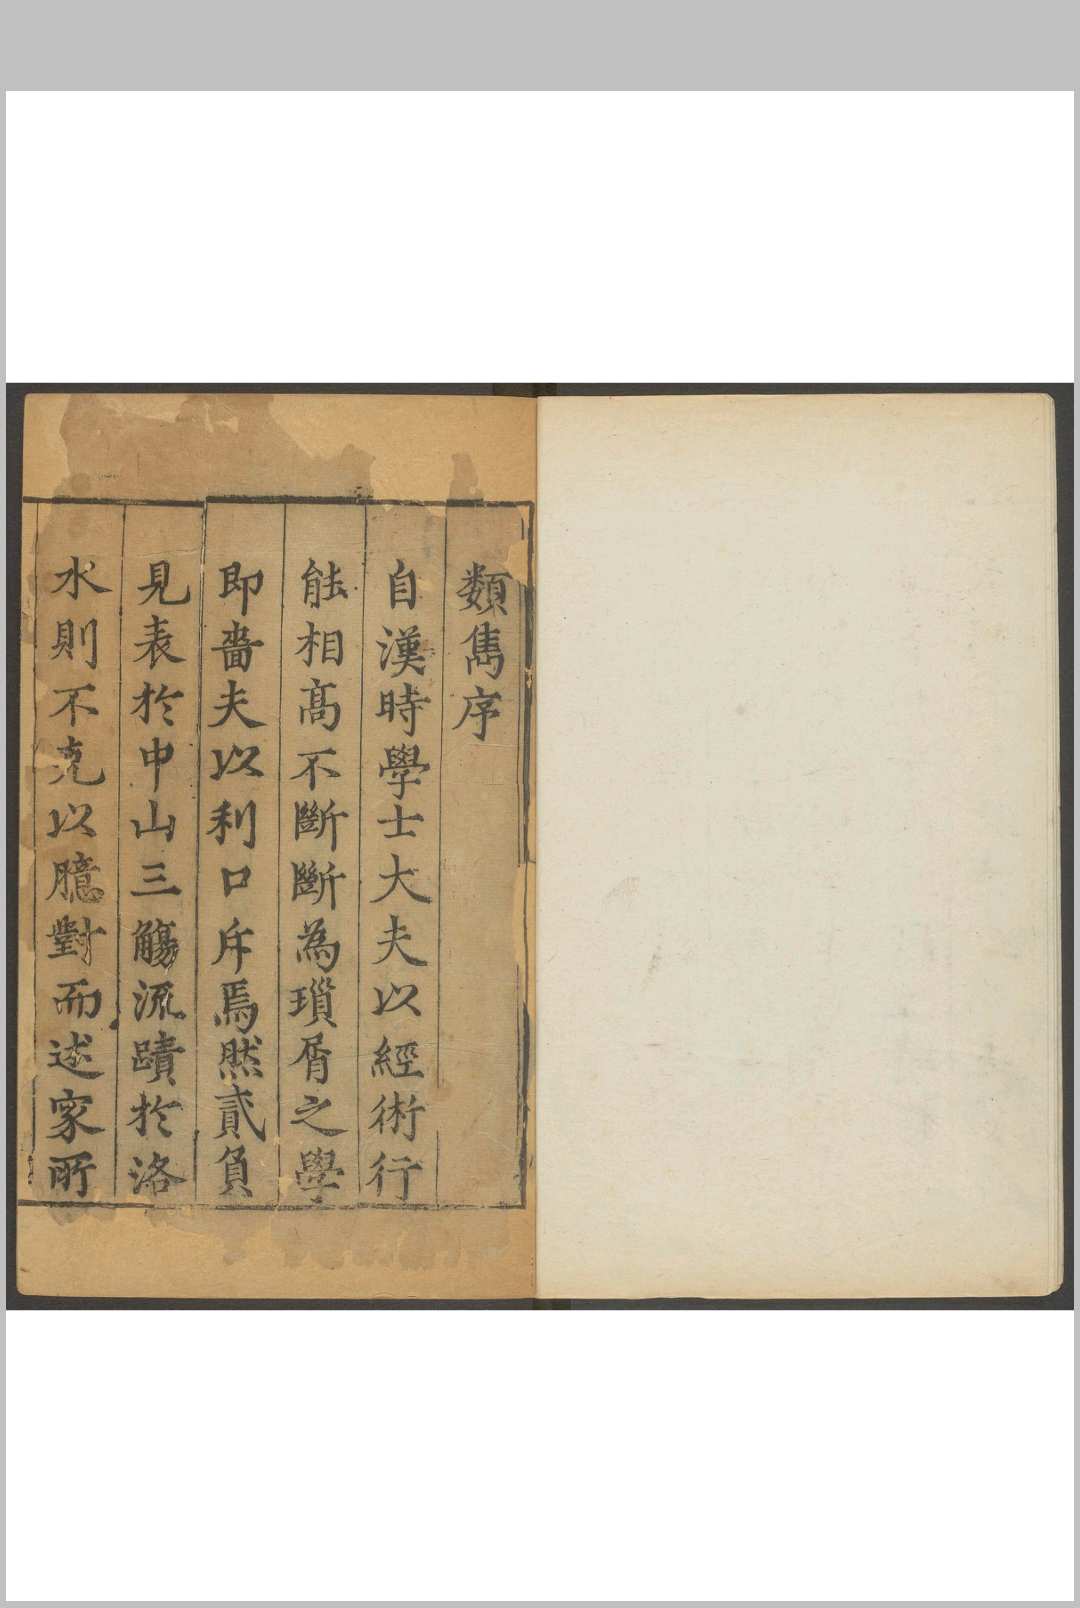 類雋序
自漢時學士大夫以經術行
能相髙不斷斷為瑣屑之學
即嗇夫以利口斥焉然貳負
見表於中山三觴流蹟於洛
水則不克以臆對而述家所